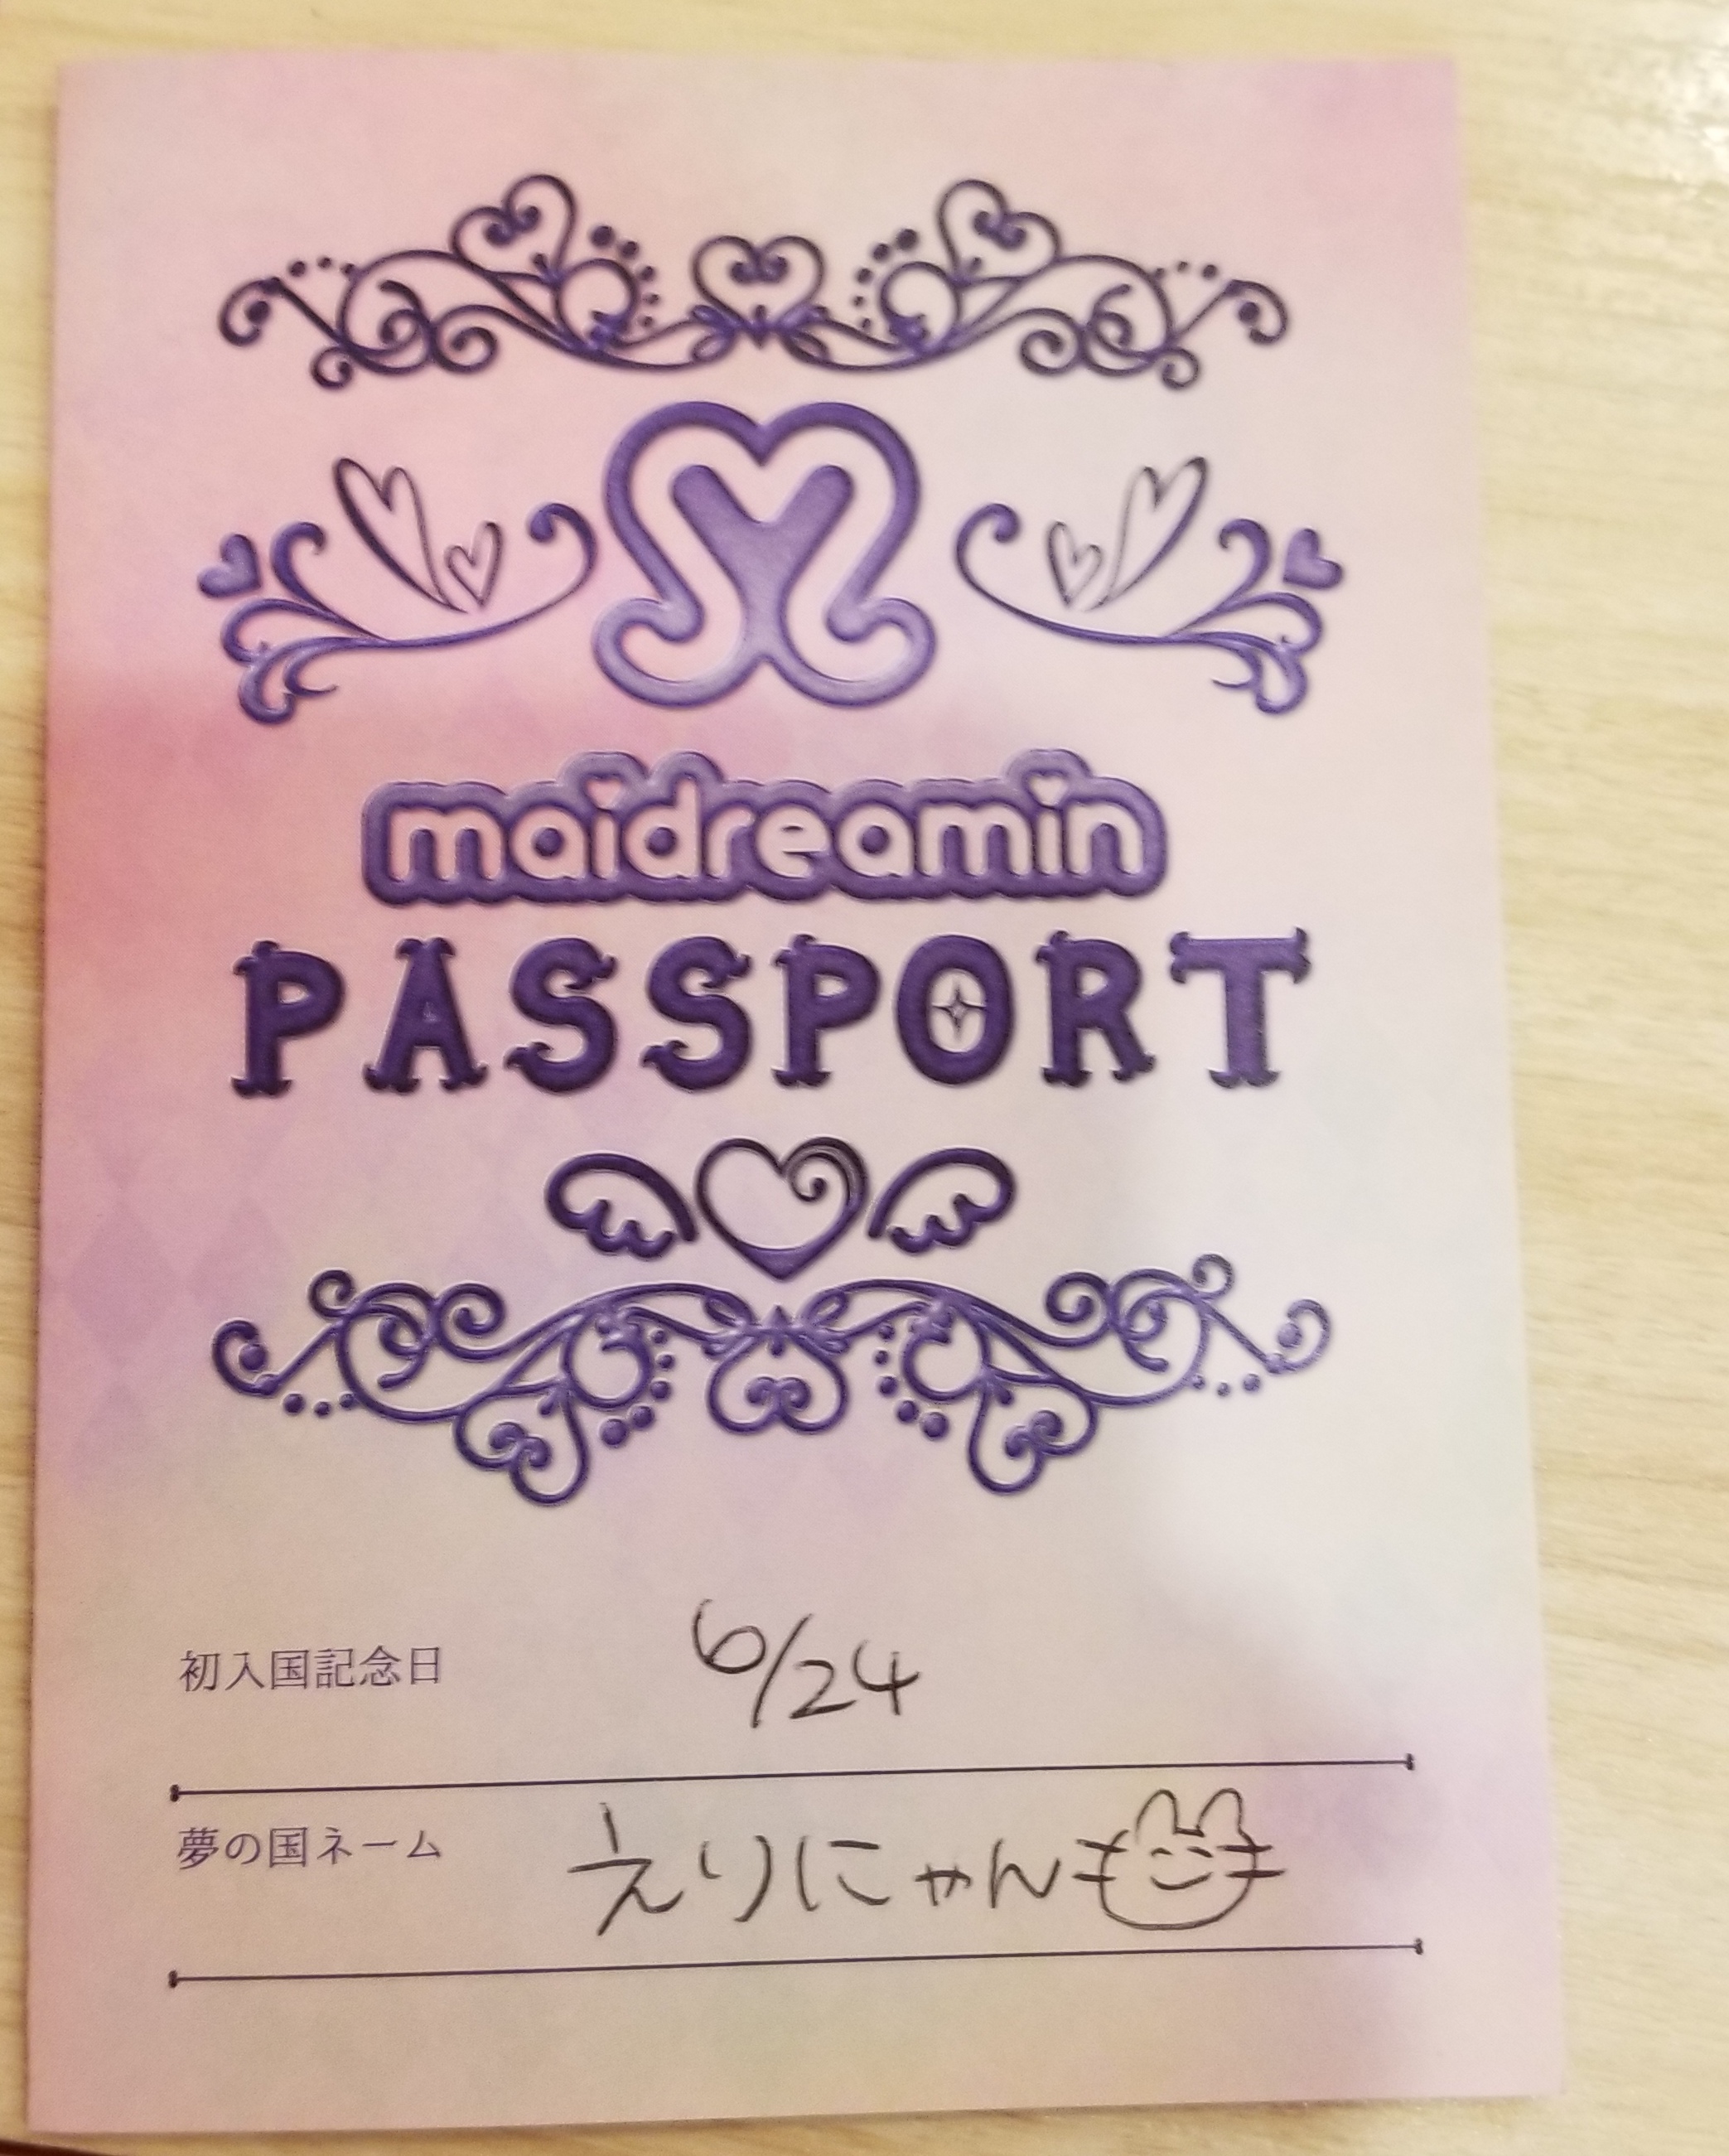 maidreamin
PASSPORT
初入国記念日 6/24
夢の国ネーム えりにゃん